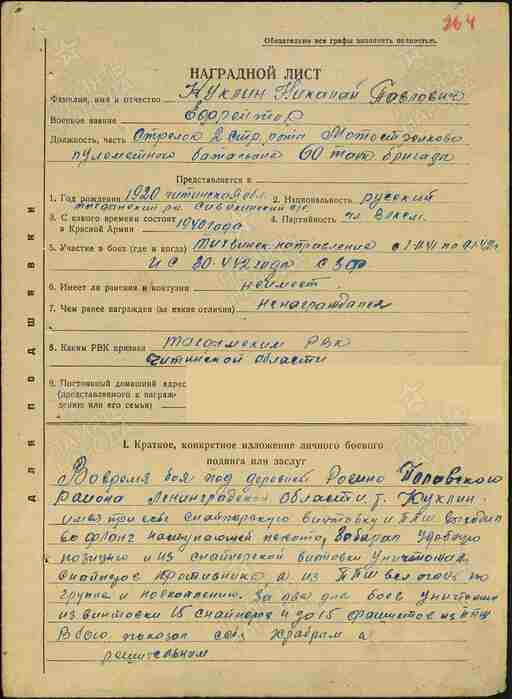 264
Обязательно все графы заполнять полностью.
НАГРАДНОЙ ЛИСТ
Фамилия, имя и отчество Куклин Николай Павлович
Военное звание Ефрейтор
Должность, часть Стрелок 2 стр. рота Мотострелково
пулеметного батальона 60 танк. бригада
Представляется к
1. Год рождения 1920 читинская обл. 2. Национальность русский
3. С какого времени состоит в Красной Армии 1940 года 4. Партийность чл. ВЛКСМ.
5. Участие в боях (где и когда) Тихвинск направление с
и с 20. года СЗФ
6. Имеет ли ранения и контузии неимеет
7. Чем ранее награжден (за какие отличия) ненаграждался
8. Каким РВК призван РВК
Читинской области
9. Постоянный домашний адрес
(представляемого к награж-
дению или его семьи)
для подшивки
I. Краткое, конкретное изложение личного боевого
подвига или заслуг
Вовремя боя под деревней Росино Полавского
района Ленинградской области т. Куклин
имея при себе снайперскую винтовку и ППШ выходил
во фланг наступающей пехоты, Забирал удобную
позицию и из снайперской винтовки уничтожал
снайперов противника а из ППШ вел огонь по
группе и навскоплению. За два дня боев уничтожил
из винтовки 15 снайперов и до 15 фашистов из ППШ
В бою показал себя храбрым и
решительным